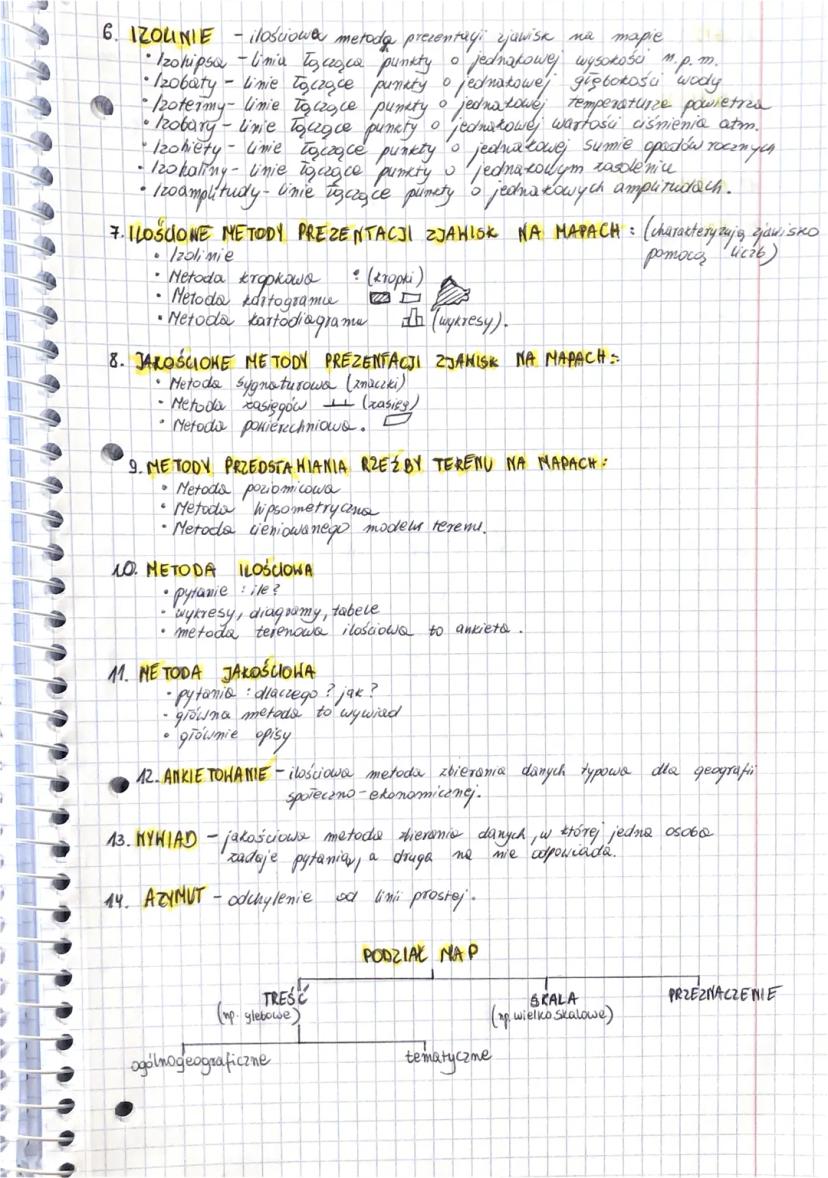 6. IZOLINIE - ilościowa metoda prezentacji zjawisk na mapie
• Izohipsa - linia łącząca punkty o jednakowej wysokości n.p.m.
• Izobaty - linie łączące punkty o jednakowej głębokości wody
• Izotermy - linie łączące punkty o jednakowej temperaturze powietrza
• Izobary - linie łączące punkty o jednakowej wartości ciśnienia atm.
• Izohiety - linie łączące punkty o jednakowej sumie opadów rocznych
• Izohaliny - linie łączące punkty o jednakowym zasoleniu
• Izoamplitudy - linie łączące punkty o jednakowych amplitudach.
7. ILOŚCIOWE METODY PREZENTACJI ZJAWISK NA MAPACH: (charakteryzują zjawisko
pomocą liczb)
• Izolinie
• Metoda kropkowa (kropki)
• Metoda kartogramu
• Metoda kartodiagramu (wykresy).
8. JAKOŚCIOWE METODY PREZENTACJI ZJAWISK NA MAPACH:
• Metoda sygnaturowa (znaczki)
• Metoda zasięgów (zasięg)
• Metoda powierzchniowa.
9. METODY PRZEDSTAWIANIA RZEŹBY TERENU NA MAPACH:
• Metoda poziomicowa
• Metoda hipsometryczna
• Metoda cieniowanego modelu terenu.
10. METODA ILOŚCIOWA
• pytanie: ile?
• wykresy, diagramy, tabele
• metoda terenowa ilościowa to ankieta.
11. METODA JAKOŚCIOWA
• pytania: dlaczego? jak?
• główna metoda to wywiad
• głównie opisy
12. ANKIETOWANIE - ilościowa metoda zbierania danych typowa dla geografii
społeczno-ekonomicznej.
13. WYWIAD - jakościowa metoda zbierania danych, w której jedna osoba
zadaje pytania, a druga na nie odpowiada.
14. AZYMUT - odchylenie od linii prostej.
PODZIAŁ MAP
TREŚĆ SKALA PRZEZNACZENIE
(np. glebowe) (np. wielkoskalowe)
ogólnogeograficzne tematyczne